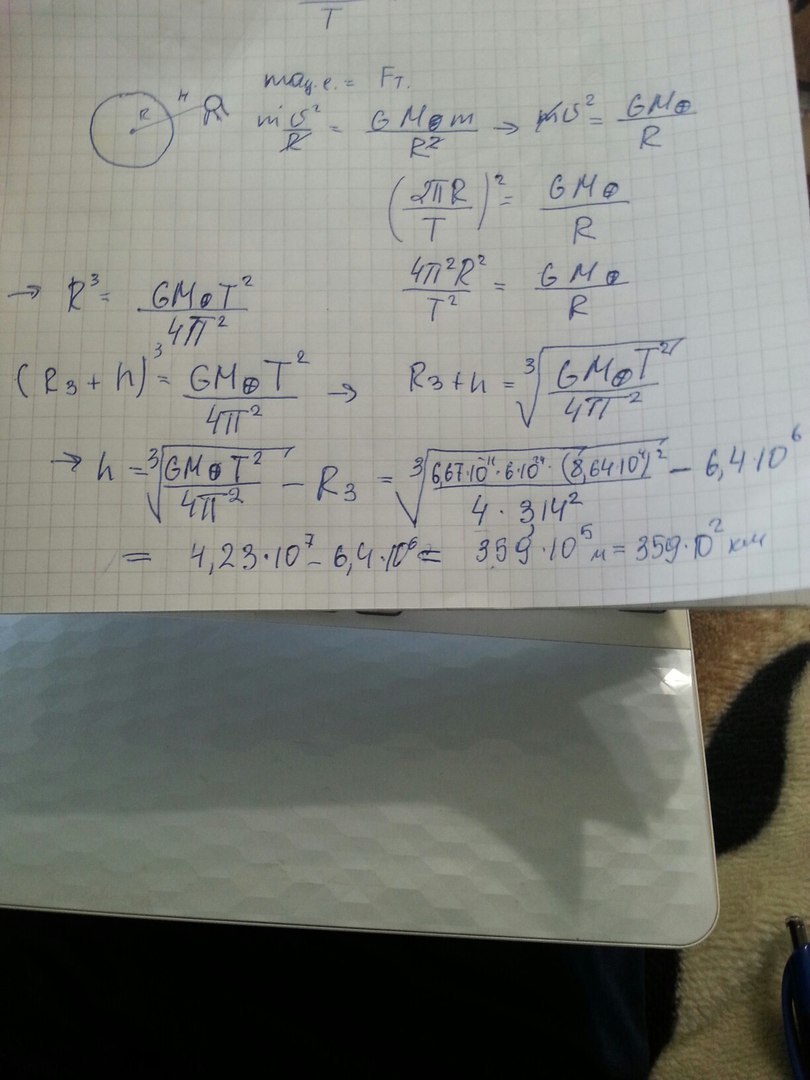 T
R H
maц.с. = Fт.
mυ²/R = GM⊕m/R² → mυ² = GM⊕/R
(2πR/T)² = GM⊕/R
→ R³ = GM⊕T²/4π² 4π²R²/T² = GM⊕/R
(R₃ + h)³ = GM⊕T²/4π² → R₃ + h = ³√(GM⊕T²/4π²)
→ h = ³√(GM⊕T²/4π²) − R₃ = ³√(6,67·10⁻¹¹·6·10²⁴·(8,64·10⁴)²/4·3,14²) − 6,4·10⁶
= 4,23·10⁷ − 6,4·10⁶ = 359·10⁵ м = 359·10² км